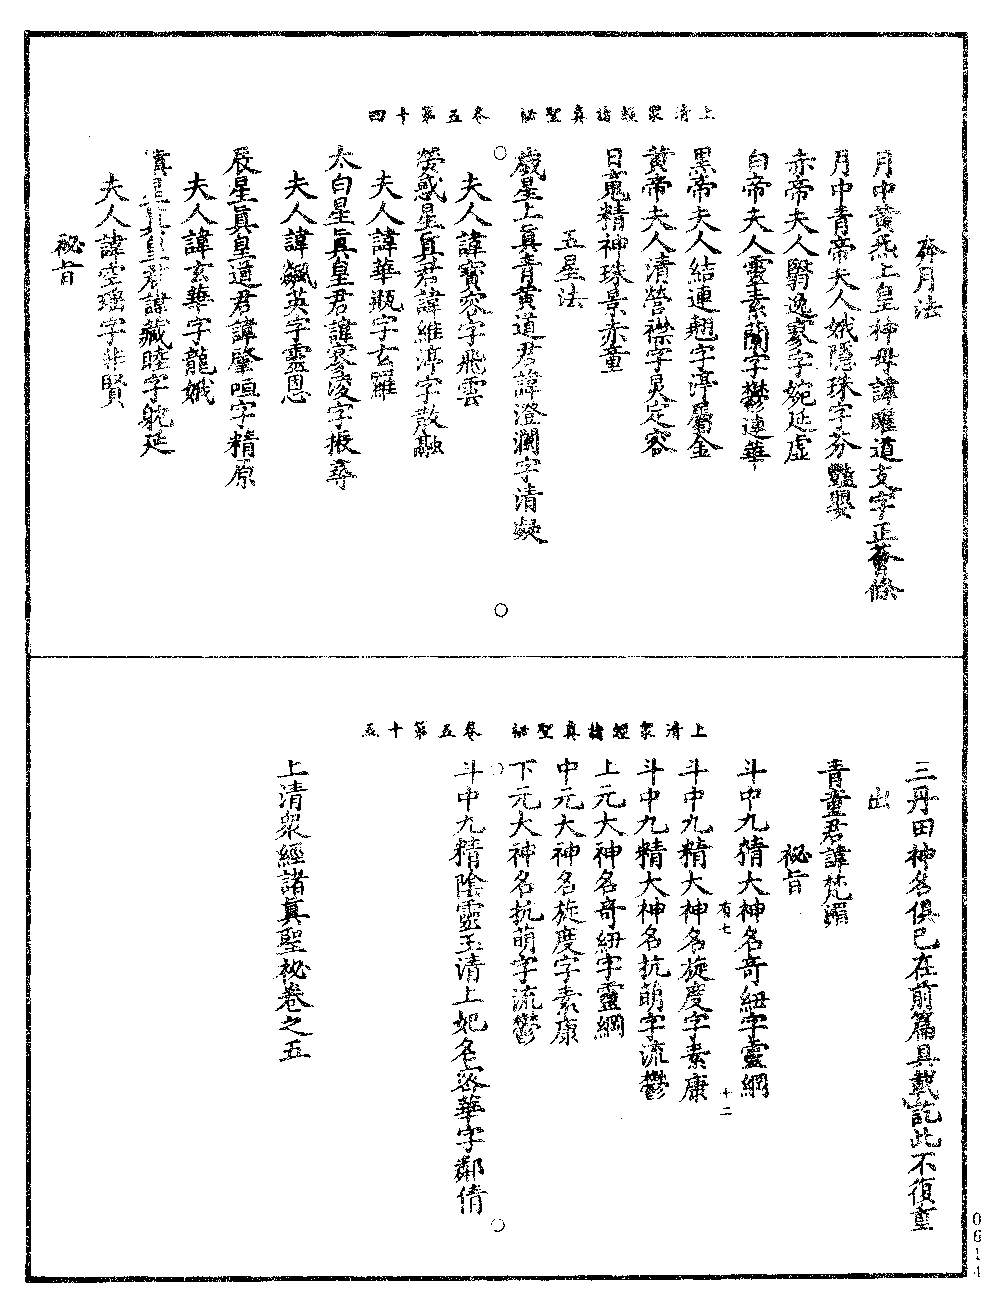 上清眾經諸真聖祕　卷五第十四
奔月法
月中黃炁上皇神母諱曜道支字正薈條
月中青帝夫人娥隱珠字芬豔嬰
赤帝夫人翳逸寥字婉延虛
白帝夫人靈素蘭字鬱連華
黑帝夫人結連翹字淳屬金
黃帝夫人清營襟字炅定容
日魂精神珠景赤童
五星法
歲星上真青黃道君諱澄瀾字清凝
夫人諱寶容字飛雲
熒惑星真君諱維渟字散融
夫人諱華瓶字玄羅
太白星真皇君諱寥凌字振尋
夫人諱飆英字靈恩
辰星真皇道君諱肇恒字精原
夫人諱玄華字龍娥
鎮星真皇君諱藏睦字躭延
夫人諱空瑶字非賢
祕旨
上清眾經諸真聖祕　卷五第十五
三丹田神名俱已在前篇具載訖此不復重
出
青童君諱梵湄
祕旨
斗中九精大神名奇紐字靈綱
有七　十二
斗中九精大神名旋度字素康
斗中九精大神名抗萌字流鬱
上元大神名奇紐字靈綱
中元大神名旋度字素康
下元大神名抗萌字流鬱
斗中九精陰靈玉清上妃名密華字鄰倩
上清眾經諸真聖祕卷之五
0614